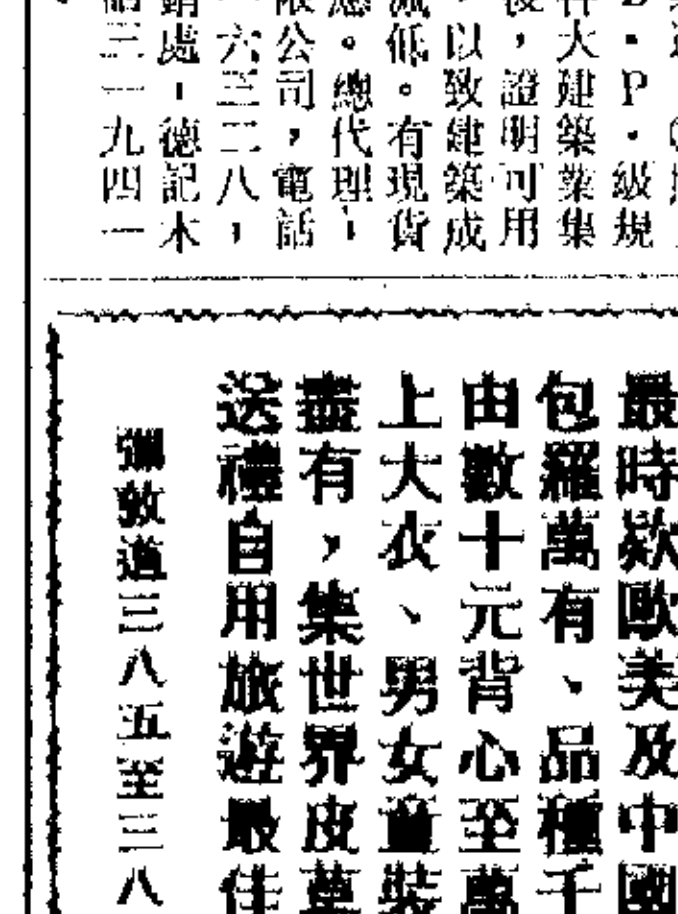 級規
件大建築業集
後，證明可用
，以致建築成
減低。有現貨
應。總代理：
限公司，電話
一六三二八，
銷處：德記木
話三一九四一
最時欵歐美及中國
包羅萬有、品種千
由數十元背心至萬
上大衣、男女童裝
盡有，集世界皮草
送禮自用旅遊最佳
彌敦道三八五至三八